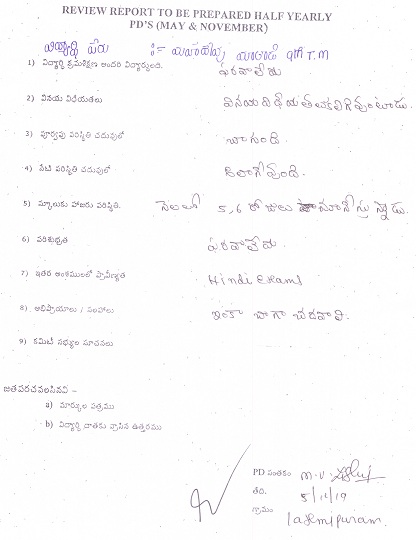 REVIEW REPORT TO BE PREPARED HALF YEARLY
PD'S (MAY & NOVEMBER)
విద్యార్థి పేరు :-
1) విద్యార్థి క్రమశిక్షణ అందరి విద్యార్థులది. పరవాలేదు
2) వినయ విధేయతలు వినయ విధేయతలు కలిగి వుంటాడు.
3) పూర్వపు పరిస్థితి చదువులో బాగుంది.
4) నేటి పరిస్థితి చదువులో అలాగే వుంది.
5) స్కూలుకు హాజరు పరిస్థితి. నెలలో 5,6 రోజులు మానేస్తున్నాడు.
6) పరిశుభ్రత పరవాలేదు
7) ఇతర అంశములలో ప్రావీణ్యత Hindi Exams
8) అభిప్రాయాలు / సలహాలు ఇంకా బాగా చదవాలి.
9) కమిటీ సభ్యుల సూచనలు
జతపరచవలసినవి :-
a) మార్కుల పత్రము
b) విద్యార్థి దాతకు వ్రాసిన ఉత్తరము
PD సంతకం M.V.
తేది. 5/11/19
గ్రామం Laxmipuram.